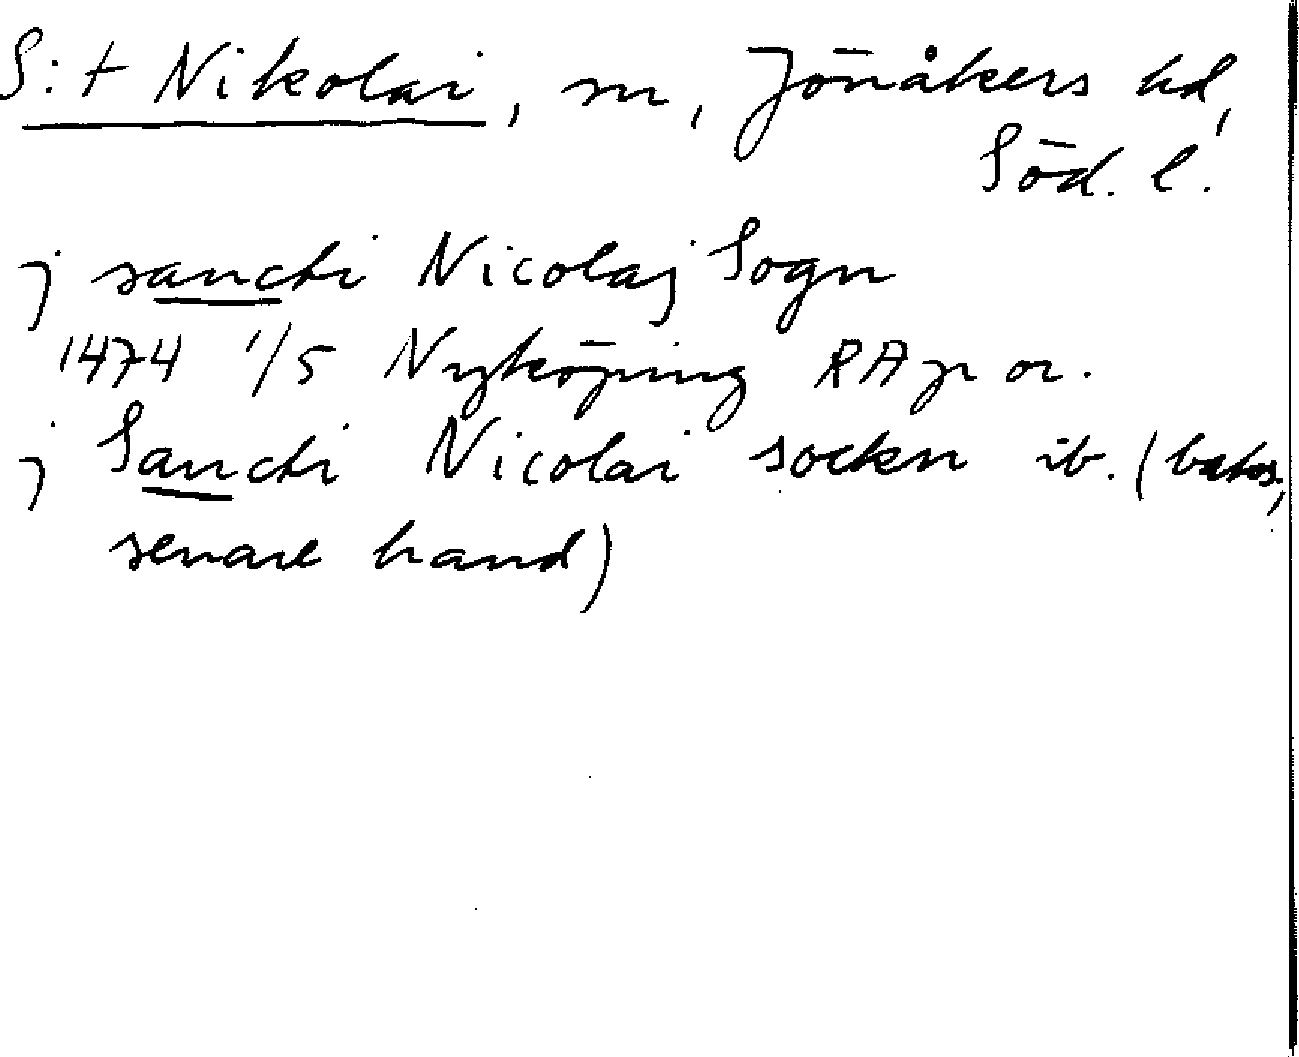 S:t Nikolai, sn, Jönåkers hd,
Söd. l.
j sancti Nicolaj Sogn
1474 1/5 Nyköping RAp or.
j Sancti Nicolai sockn ib. (baks.,
senare hand)